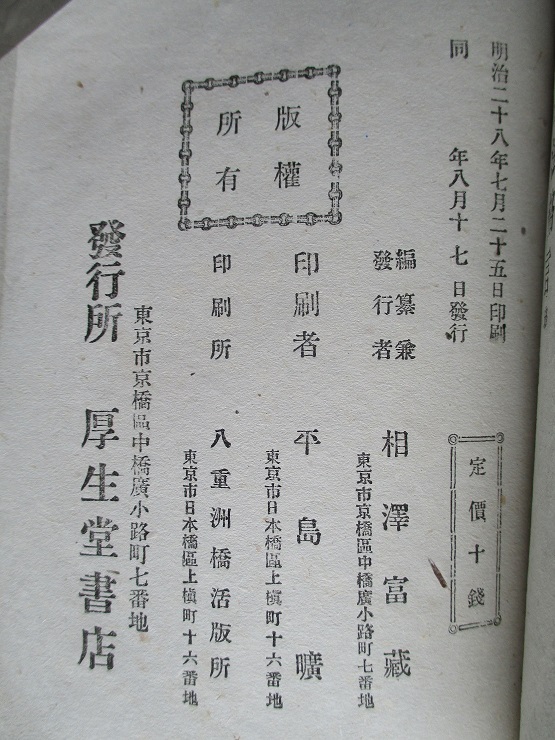 明治二十八年七月二十五日印刷
同年八月十七日發行
定價十錢
版權
所有
編纂兼
發行者
相澤富藏
東京市京橋區中橋廣小路町七番地
印刷者
平島曠
東京市日本橋區上槇町十六番地
印刷所
八重洲橋活版所
東京市日本橋區上槇町十六番地
東京市京橋區中橋廣小路町七番地
發行所 厚生堂書店